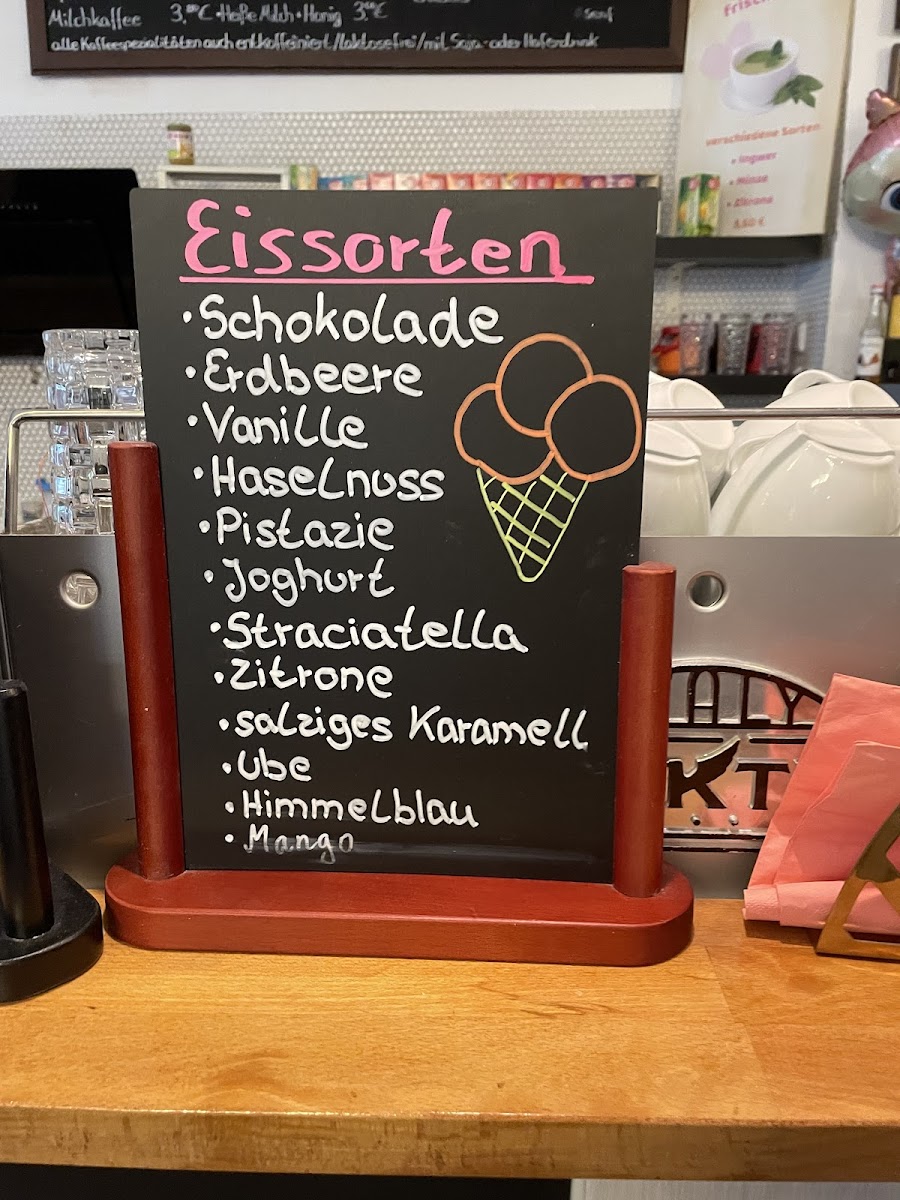 Milchkaffee 3,⁰⁰€ • Heiße Milch + Honig 3,⁰⁰€
alle Kaffeespezialitäten auch entkoffeiniert/laktosefrei/mit Soja- oder Haferdrink
verschiedene Sorten
• Ingwer
• Minze
• Zitrone
Eissorten
• Schokolade
• Erdbeere
• Vanille
• Haselnuss
• Pistazie
• Joghurt
• Straciatella
• Zitrone
• salziges Karamell
• Ube
• Himmelblau
• Mango
ALY
KT